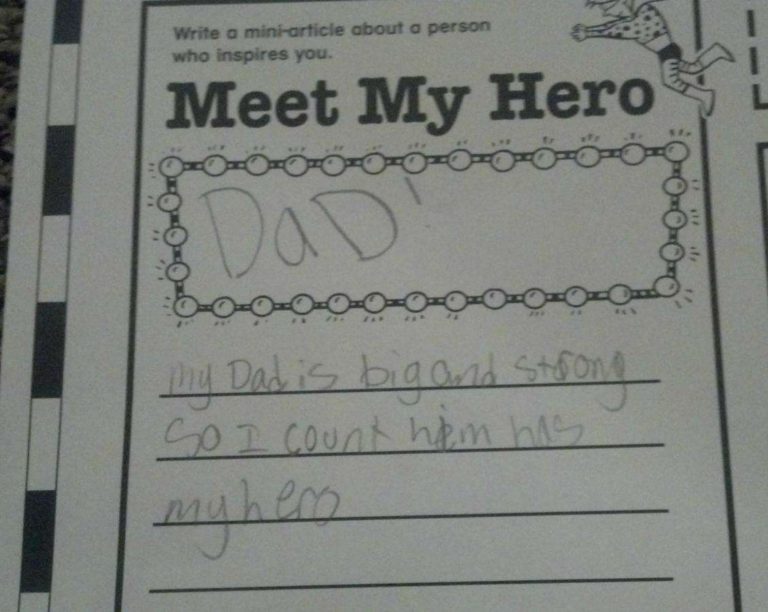 Write a mini-article about a person
who inspires you.
Meet My Hero
DaD!
my Dad is big and strong
So I count him has
my hero